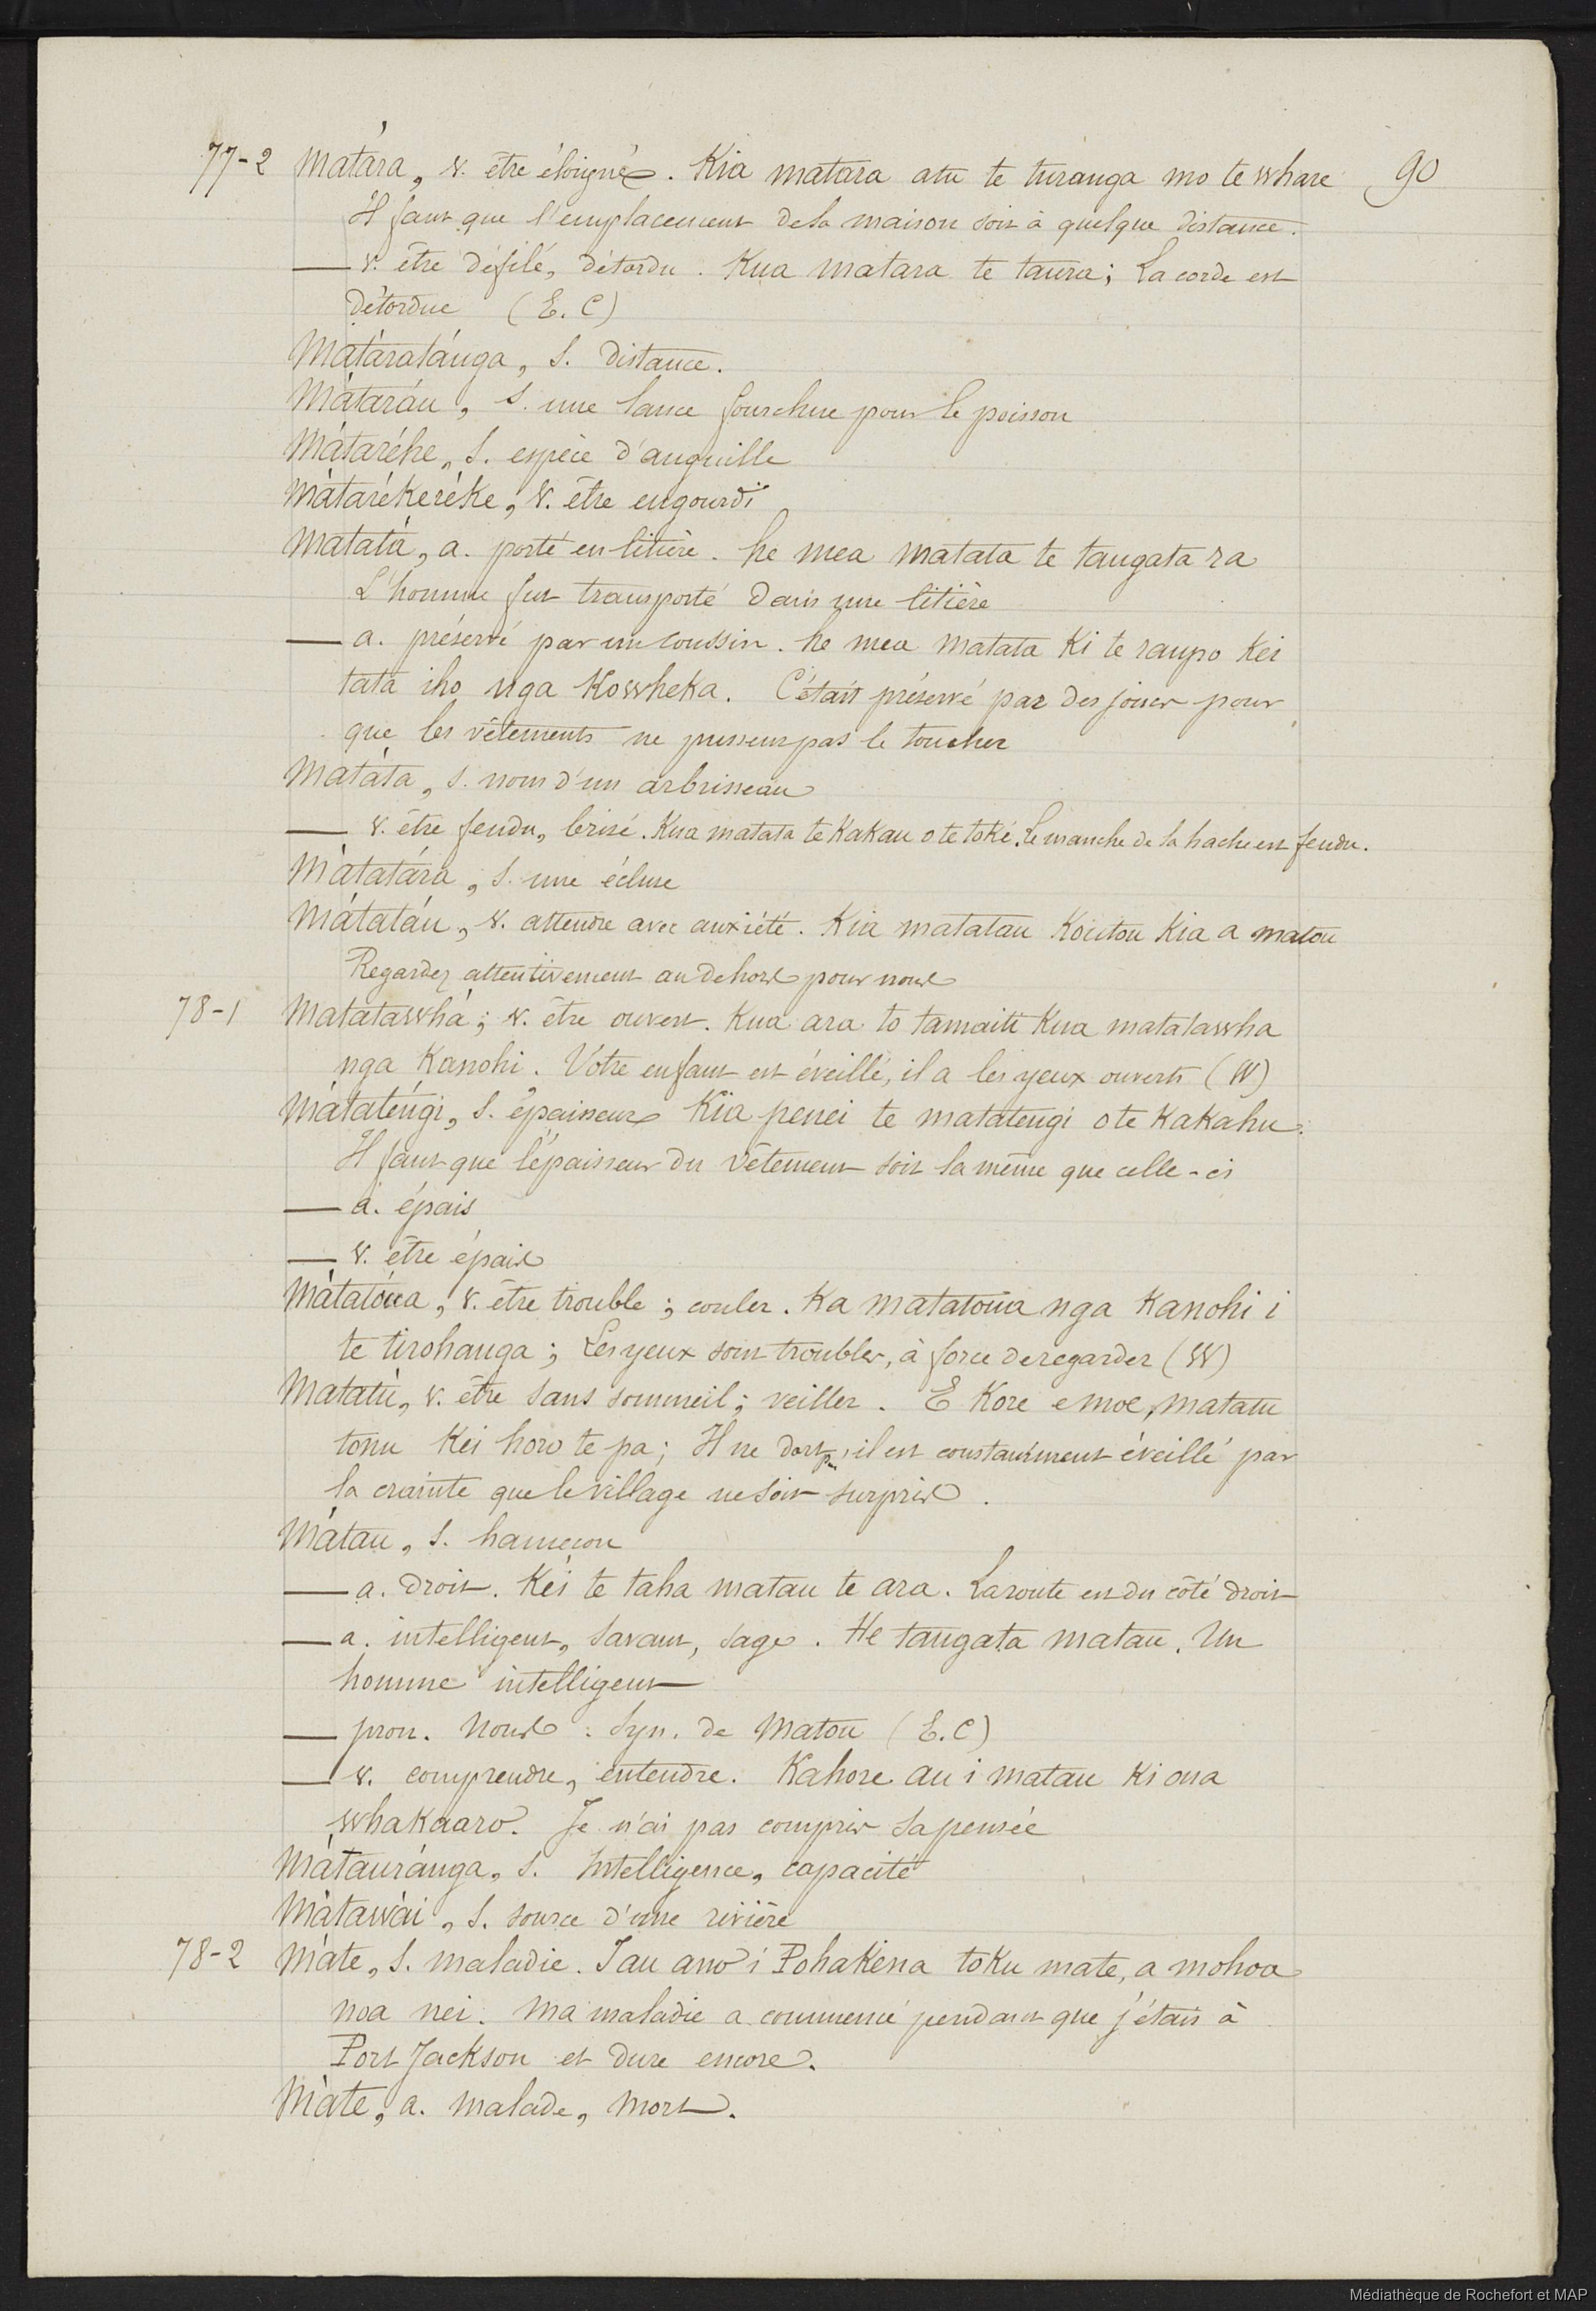 77-2 Matára, v. être éloigné. Kia matara atu te turanga mo te whare 90
Il faut que l'emplacement de la maison soit à quelque distance.
— v. être défilé, détordu. Kua matara te taura; La corde est
détordue (E. C)
Mátaratánga, s. distance.
Mátaráu, s. une lance fourchue pour le poisson
Mátaréhe, s. espèce d'anguille
Mátarékeréke, v. être engourdi
Matatá, a. porté en litière. he mea matata te tangata ra
L'homme fut transporté dans une litière
— a. préservé par un coussin. he mea matata Ki te raupo Kei
tata iho nga Kowheka. C'était préservé par des joncs pour
que les vêtements ne pussent pas le toucher
Matáta, s. nom d'un arbrisseau
— v. être fendu, brisé. Kua matata te Kakau o te toki. Le manche de la hache est fendu.
Mátatára, s. une écluse
Mátatáu, v. attendre avec anxiété. Kia matatau Koutou Kia a matou
Regardez attentivement au dehors pour nous
78-1 Matatawhá; v. être ouvert. Kua ara to tamaiti Kua matatawha
nga Kanohi. Votre enfant est éveillé, il a les yeux ouverts (W)
Mátaténgi, s. épaisseur Kia penei te matatengi o te Kakahu.
Il faut que l'épaisseur du vêtement soit la même que celle-ci
— a. épais
— v. être épais
Mátatóua, v. être trouble; couler. Ka matatoua nga Kanohi i
te tirohanga; Les yeux sont troubles, à force de regarder (W)
Matatú, v. être sans sommeil; veiller. E Kore e moe, matatu
tonu Kei horo te pa; Il ne dort pas, il est constamment éveillé par
la crainte que le village ne soit surpris.
Mátau, s. hameçon
— a. droit. Kei te taha matau te ara. La route est du côté droit
— a. intelligent, savant, sage. He tangata matau. Un
homme intelligent
— pron. Nous. Syn. de Matou (E. C)
— v. comprendre, entendre. Kahore au i matau Ki ona
whakaaro. Je n'ai pas compris sa pensée
Mátauránga, s. Intelligence, capacité
Mátawái, s. source d'une rivière
78-2 Máte, s. maladie. I au ano i Pohakena toku mate, a mohoa
noa nei. Ma maladie a commencé pendant que j'étais à
Port Jackson et dure encore.
Máte, a. malade, mort.
Médiathèque de Rochefort et MAP